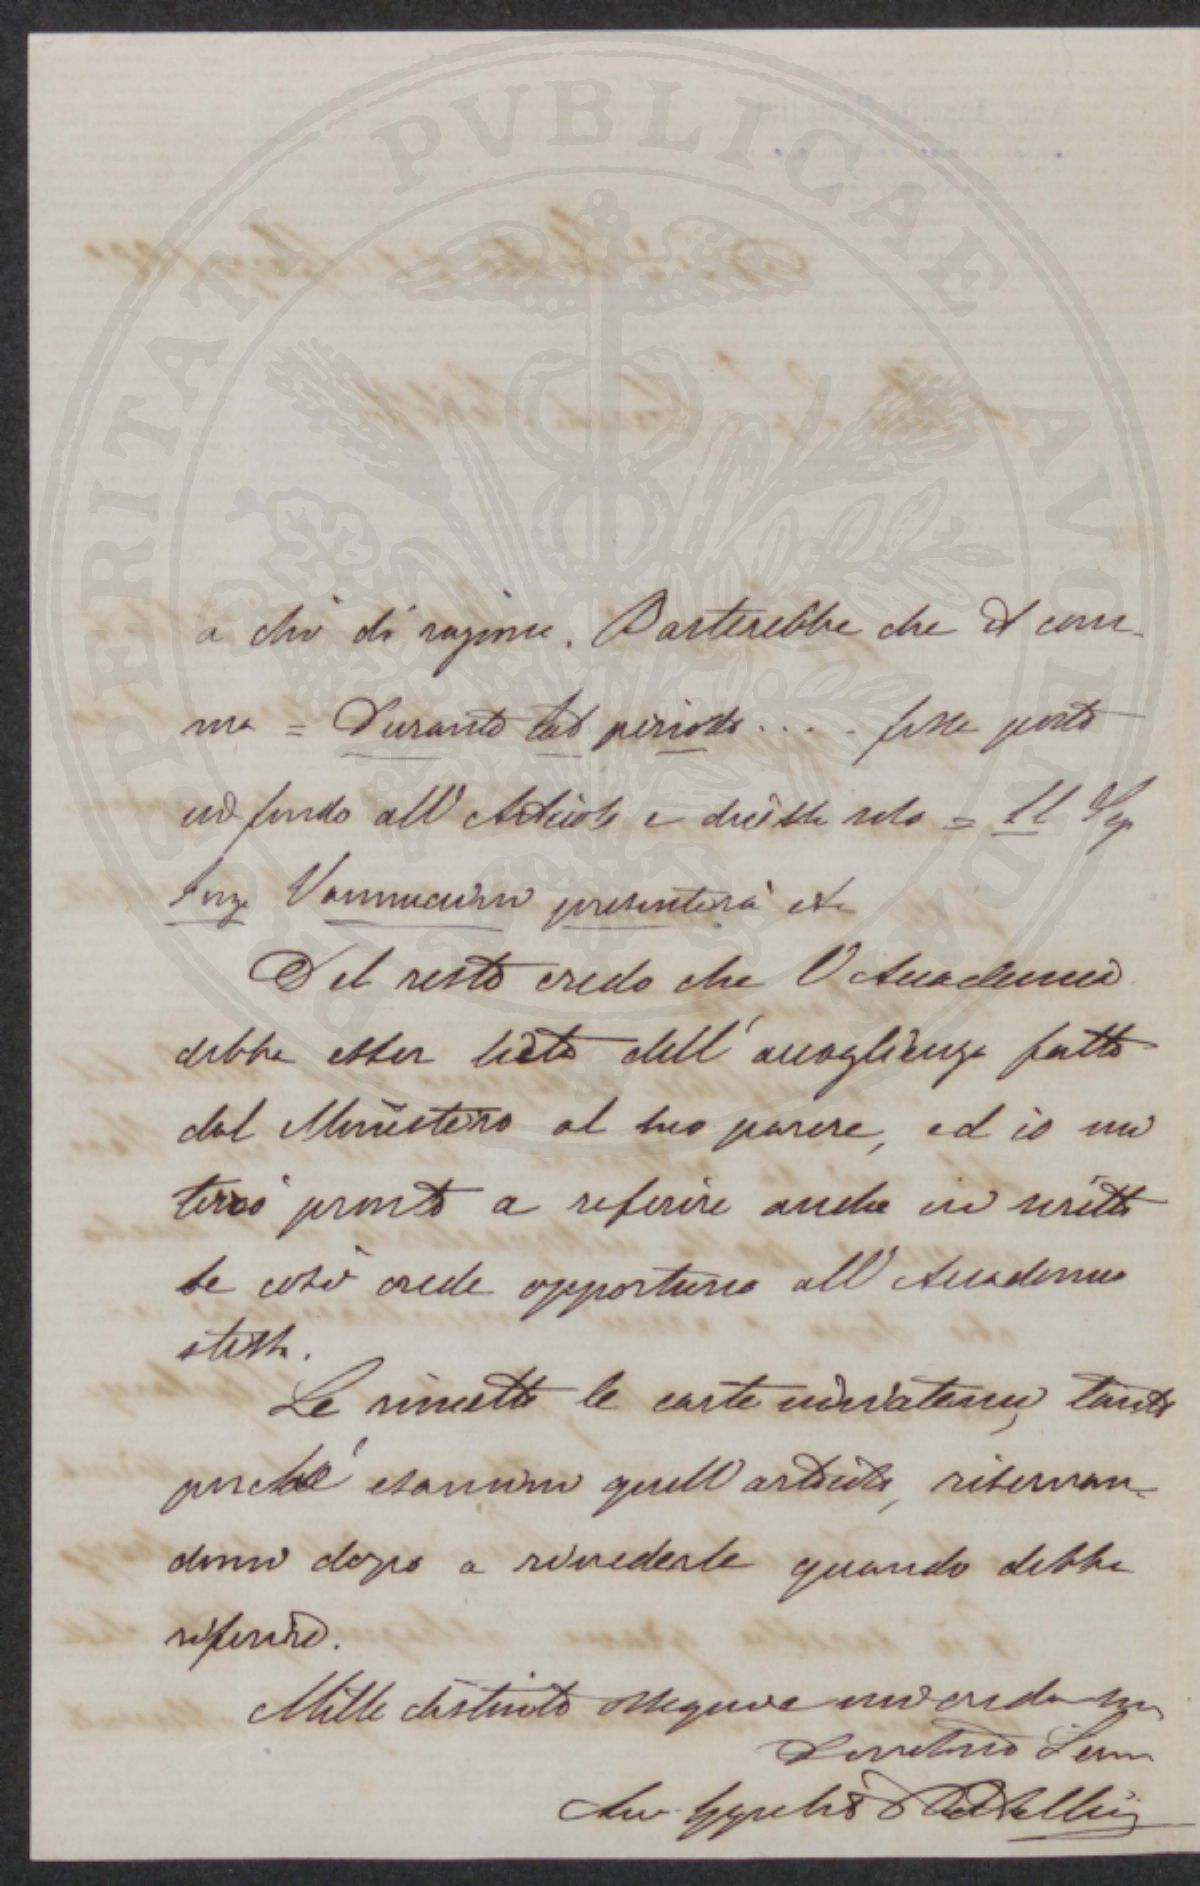 PROSPERITATI PUBLICAE AVGENDAE
a chi di ragione. Basterebbe che il com-
ma = Durante tal periodo .... fosse posto
in fondo all'Articolo e dicesse solo = Il Sig
Ing. Vannuccini presenterà etc
Del resto credo che l'Accademia
debba esser lieta dell'accoglienza fatta
dal Ministero al suo parere, ed io mi
terrò pronto a referire anche in scritto
se così crede opportuno all'Accademia
stessa.
Le rimetto le carte inviatemi, tanto
perché esamini quell'articolo, riservan-
domi dopo a rivederle quando debba
riferire.
Mille distinti ossequi e mi creda suo
Devotissimo Servo
Avv.